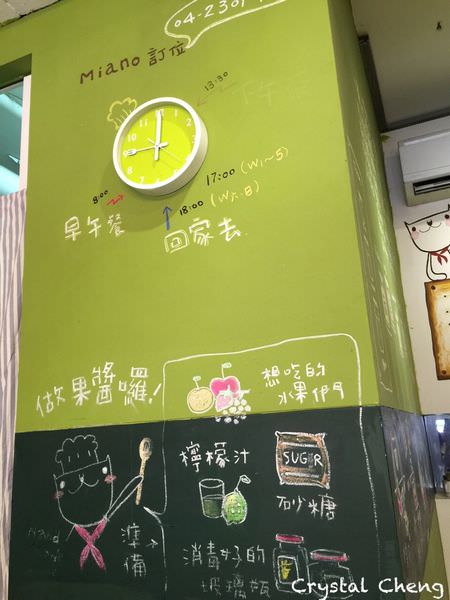 04-2301
Miano 訂位
13:30
下午
11 12 1
10 2
9 3
8 4
7 6 5
8:00
早午餐
17:00 (W1~5)
18:00 (W六.日)
回家去
做果醬囉!
想吃的
水果們
檸檬汁
SUGAR
砂糖
準
備
消毒好的
玻璃瓶
Crystal Cheng